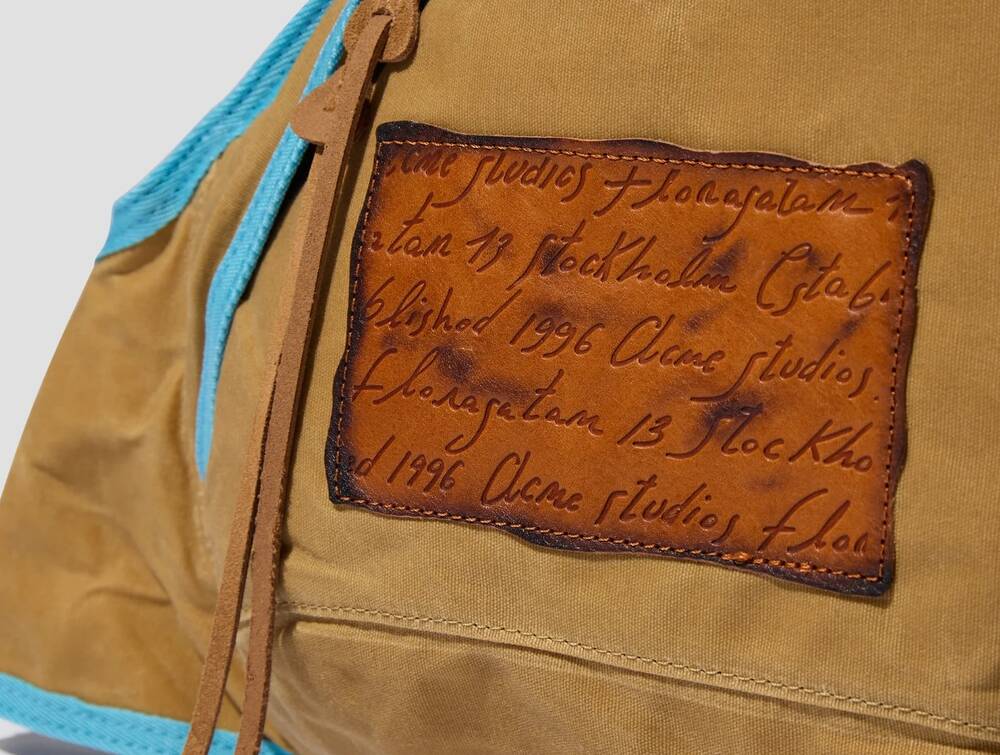 cme studios Floragatan 1
atan 13 Stockholm Estab
blished 1996 Acne studios.
Floragatan 13 Stockho
ed 1996 Acne studios Flor